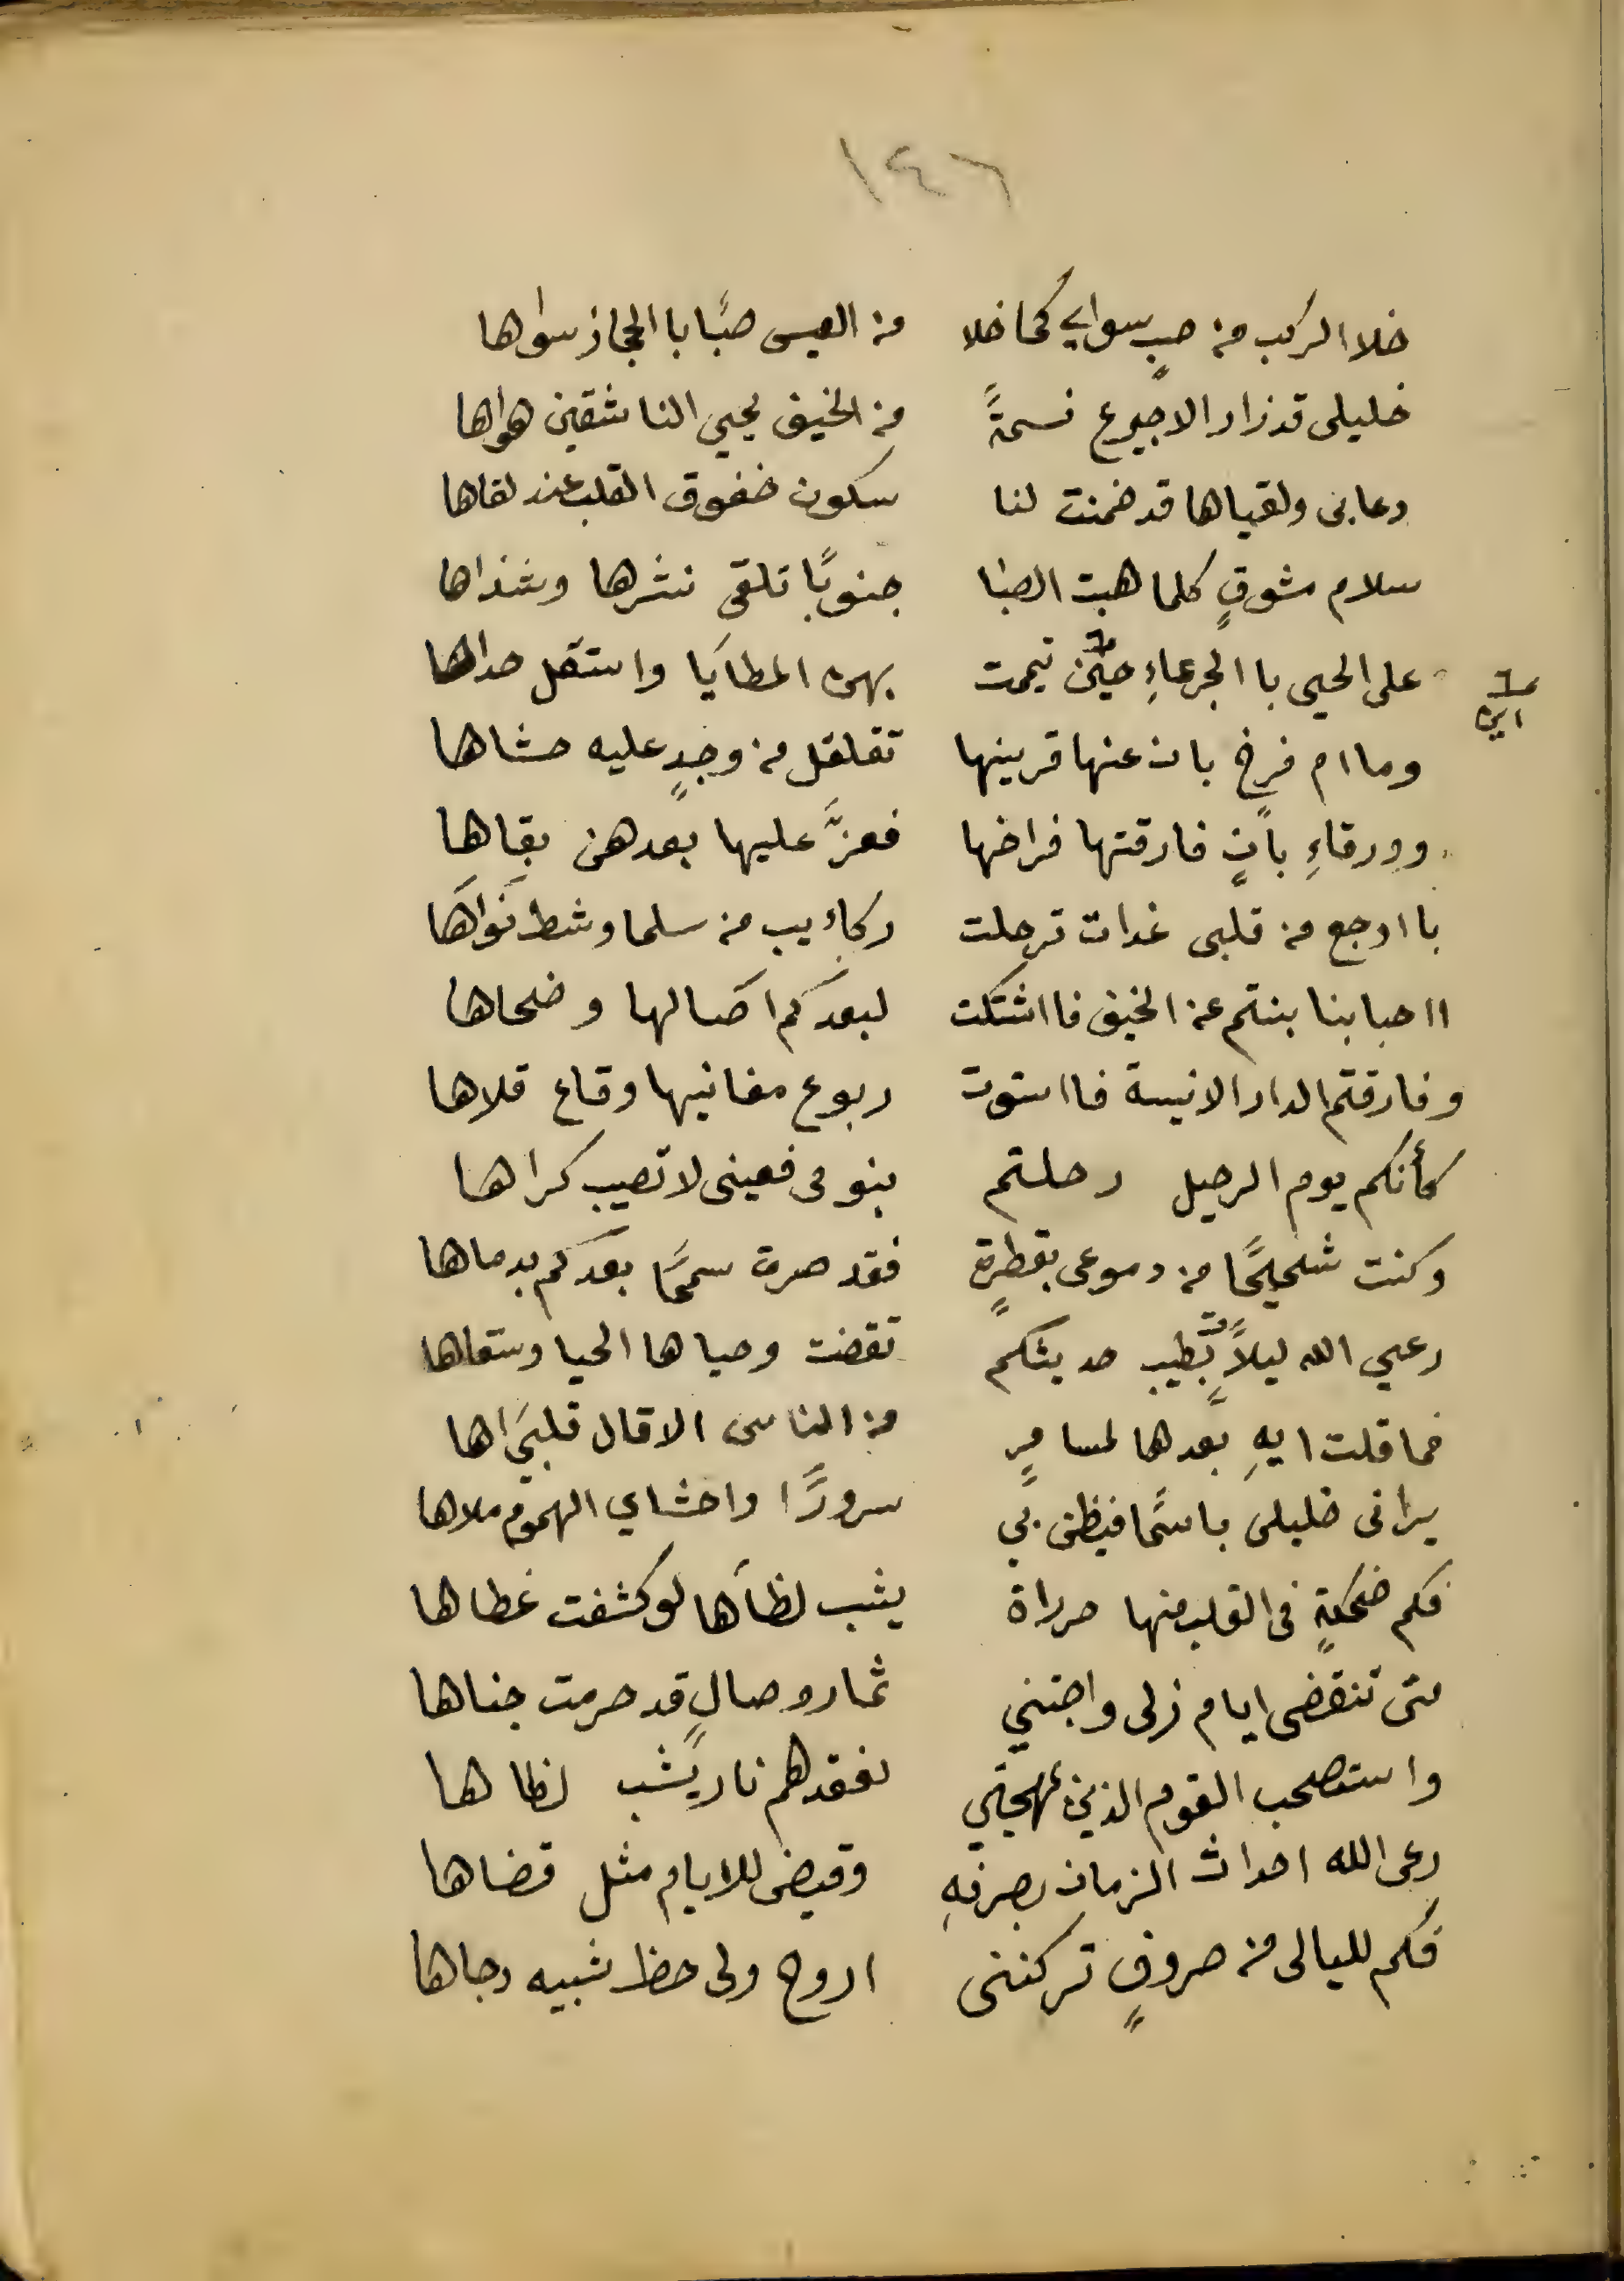 ١٤٦
خلا الركب من صبٍ سواي كما خلا من العيس صبًا با الحجاز سواها
خليلي قد زار الاجيرع نسمةً من الخيف يحيي الناشقين هواها
دعا بي ولقياها قد ضمنت لنا سكون خفوق القلب عند لقاها
سلام مشوقٍ كلما هبت الصبا جنوبًا تلقى نشرها وشذاها
على الحيي با الجرعاءِ حين تيممت بهن المطايا واستقل حداها
اين
وما ام فرخٍ بان عنها قرينها تقلقل من وجدٍ عليه حشاها
وورقاءِ بانٍ فارقتها فراخها فعزَّ عليها بعدهن بقاها
با اوجع من قلبي غدات ترحلت ركايب من سلما وشط نواها
ااحبابنا بنتم عن الخيف فااشتكت لبعدكم اصالها وضحاها
وفارقتم الدار الانيسة فااستوت ربوع مغانيها وقاع قلاها
كأنكم يوم الرحيل رحلتم بنومي فعيني لا تصيب كراها
وكنت شحيحًا من دموعي بقطرةٍ فقد صرت سمحًا بعدكم بدماها
رعي الله ليلاتٍ بطيب حديثكم تقضت وحياها الحيا وسقاها
فما قلت ايهِ بعدها لمسامرٍ من الناس الا قال قلبي اها
يراني خليلي باسمًا فيظن بي سرورًا واحشاي الهموم ملاها
فكم ضحكةٍ في القلب منها حرراة يشب لظاها لو كشفت غطاها
متى تنقضي ايام زلي واجتني ثمار وصالٍ قد حرمت جناها
واستصحب القوم الذين بمهجتي لفقدهم نار يشب لظاها
رعى الله احداث الزمان بصرفهِ وقيض للايام مثل قضاها
فكم لليالي من صروفٍ تركنني اروح ولي حظ شبيه دجاها